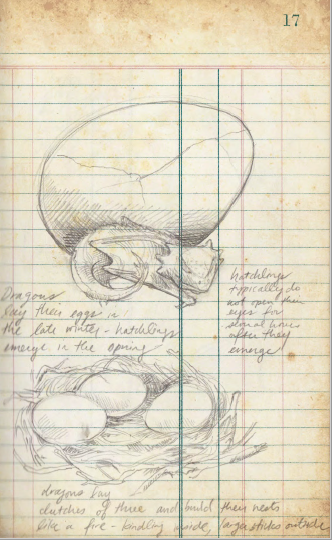 17
Dragons
lay their eggs in
the late winter - hatchlings
emerge in the spring
hatchlings
typically do
not open their
eyes for
several hours
after they
emerge
dragons lay
clutches of three and build their nests
like a fire - kindling inside, larger sticks outside